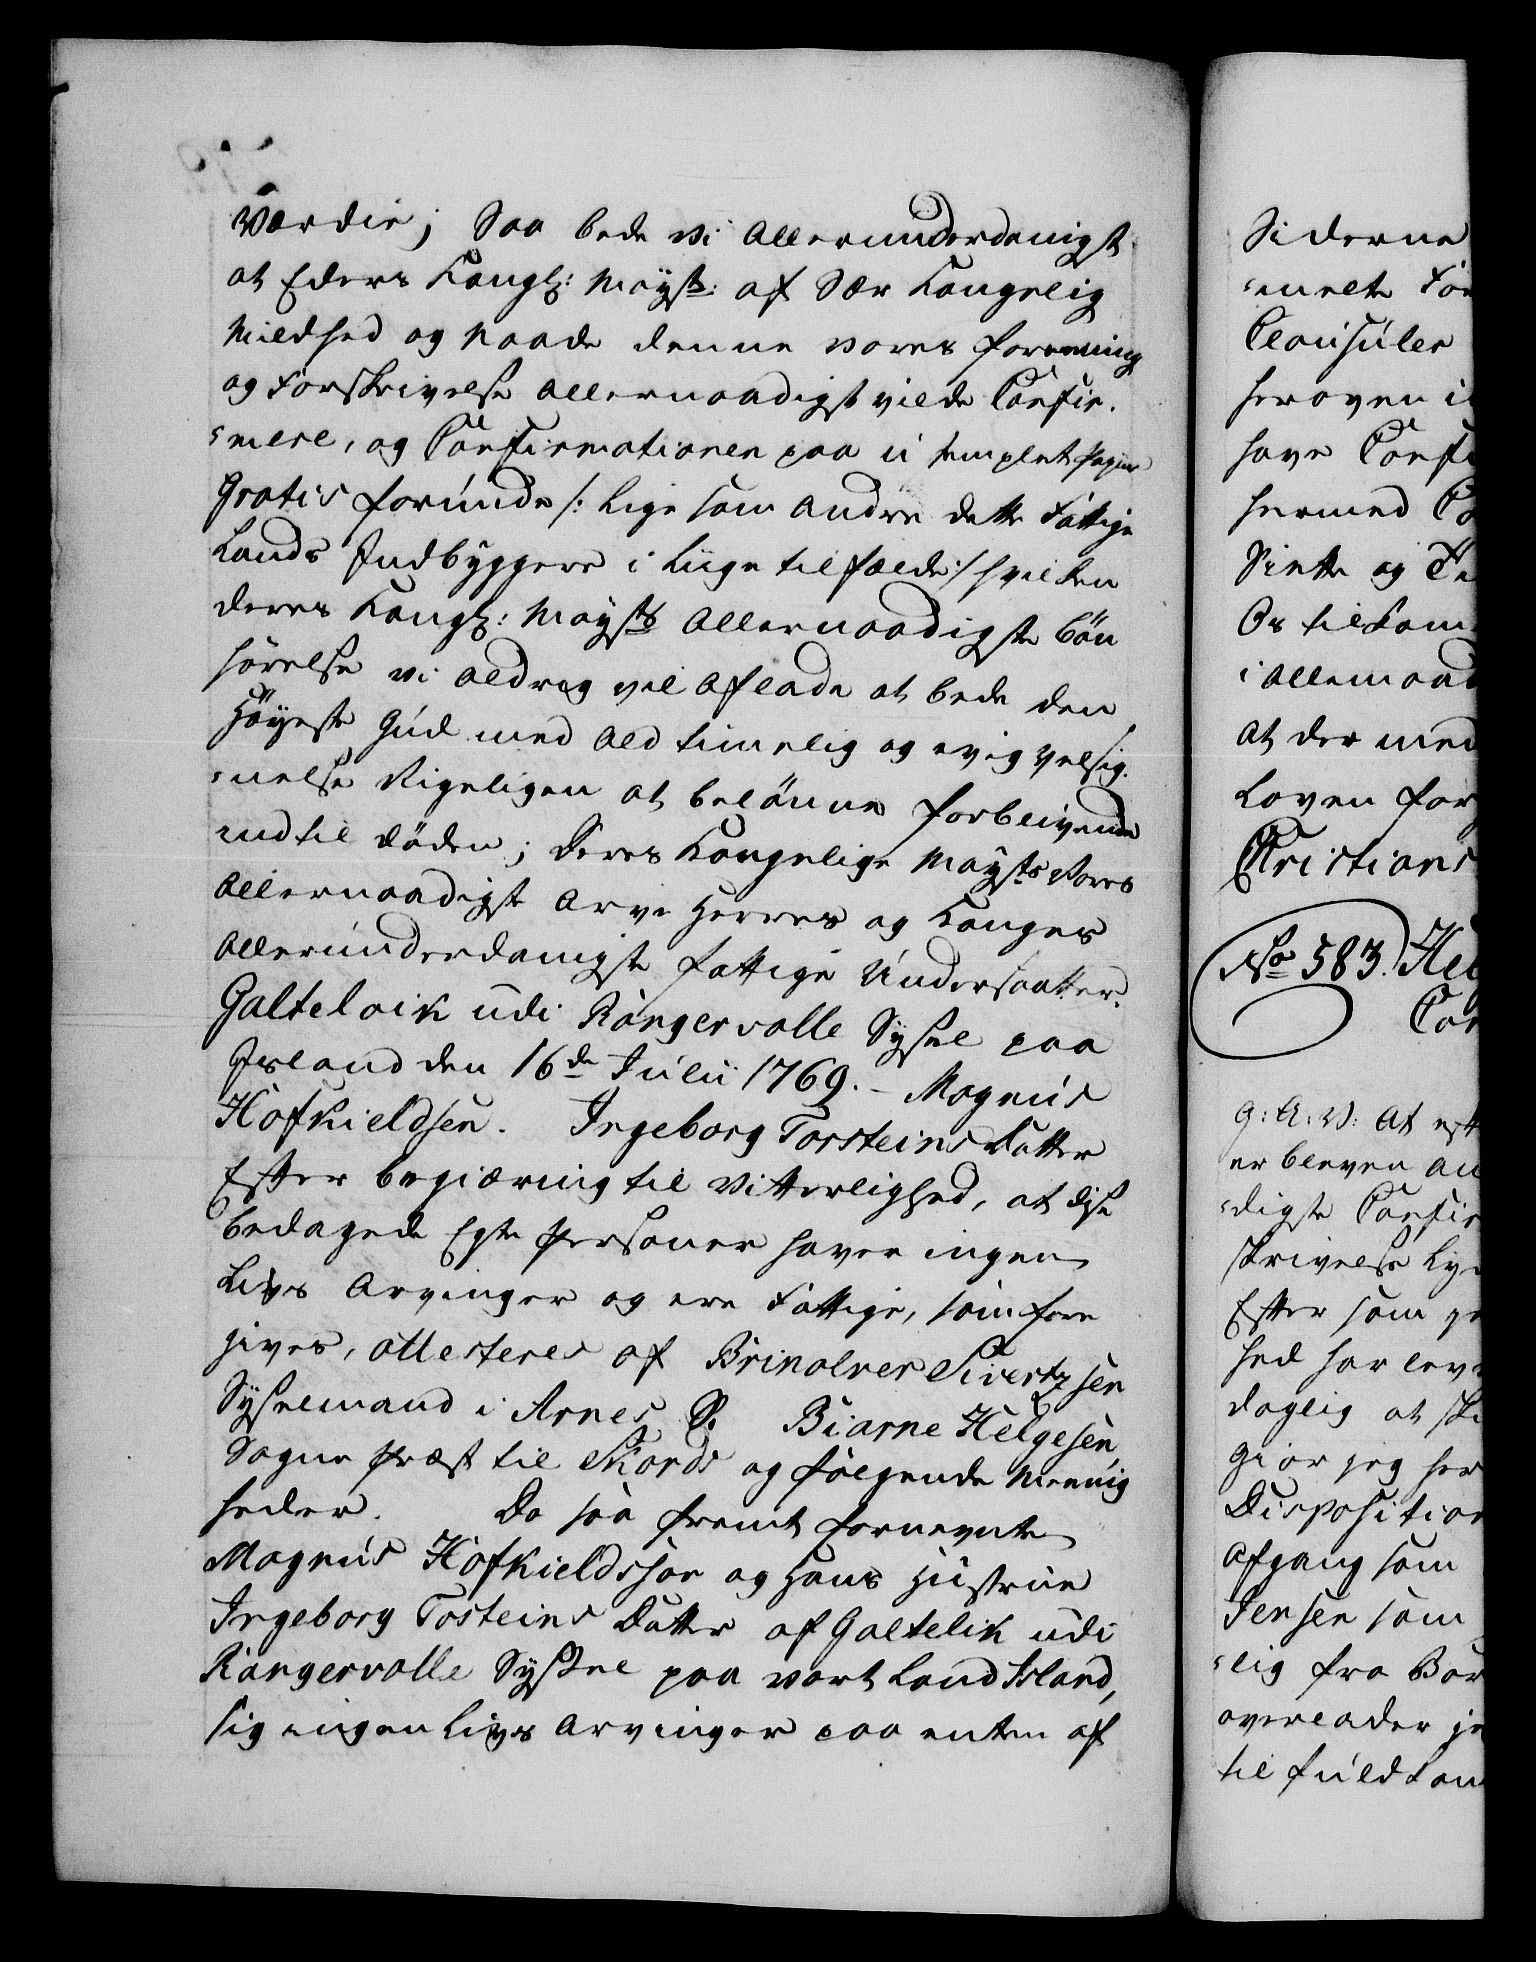 Værdie; Saa bede vi Allerunderdanigst
at Eders Kongl: Mayst: af Sær Kongelig
Mildhed og Naade denne vores forening
og Forskrivelse Allernaadigst vilde Confir-
-mere, og Confirmationen paa ustemplet Papiir
Gratis forunde /: Lige som Andre dette Fattige
Lands Indbyggere i Liige tilfælde :/ hvilken
deres Kongl: Maysts Allernaadigste bön
hörelse vi aldrig vil Aflade at bede den
Höyeste Gud med Ald timelig og evig velsig-
-nelse Rigeligen at belönne forblivende
indtil döden; Deres Kongelige Maysts Vores
Allernaadigste Arve Herres og Konges
Allerunderdanigste fattige Undersaatter.
Galteloik udi Rangervalle Sysel paa
Island den 16de Julii 1769. – Magnus
Hofkieldsen. Ingeborg Torsteins Datter
Efter begiæring til Vitterlighed, at disse
bedagede Egte Personer haver ingen
Livs Arvinger og ere Fattige, som fore
gives, attesteres af Brinolver Sivertzsen
Sysselmand i Arnes S. Biarne Helgesen
Sogne Præst til Skards og fölgende Menig
heder. Da saa fremt fornevnte
Magnus Hofkieldssøn og Hans Hustrue
Ingeborg Tosteins Datter af Galtelik udi
Rangervalle Syssel paa vort Land Island,
sig ingen Livs Arvinger paa enten af
Siderne
Clausuler
heroven
have
hermed
Rette og
Os tilkom
i Allernaad
At der med
Loven for
Christians
No 583.
G: A: V: At eft
er bleven an
-digste Confir
skrivelse Ly
Efter som
hed har lev
daglig at
Giør jeg her
Disposition
Afgang som
Jensen som
-lig fra Bor
overlader je
til fuldkom